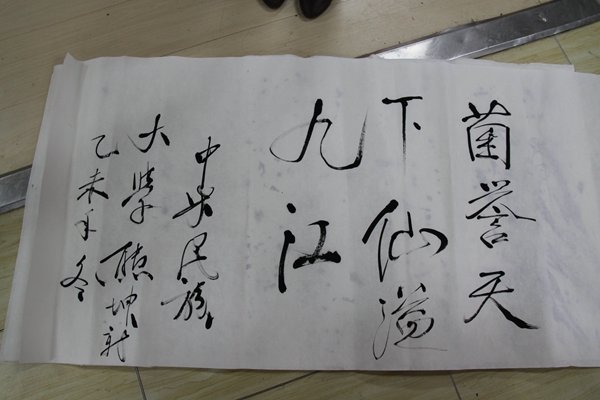 菌誉天
下仙溢
九江
中央民族
大学熊坤新
乙未年冬